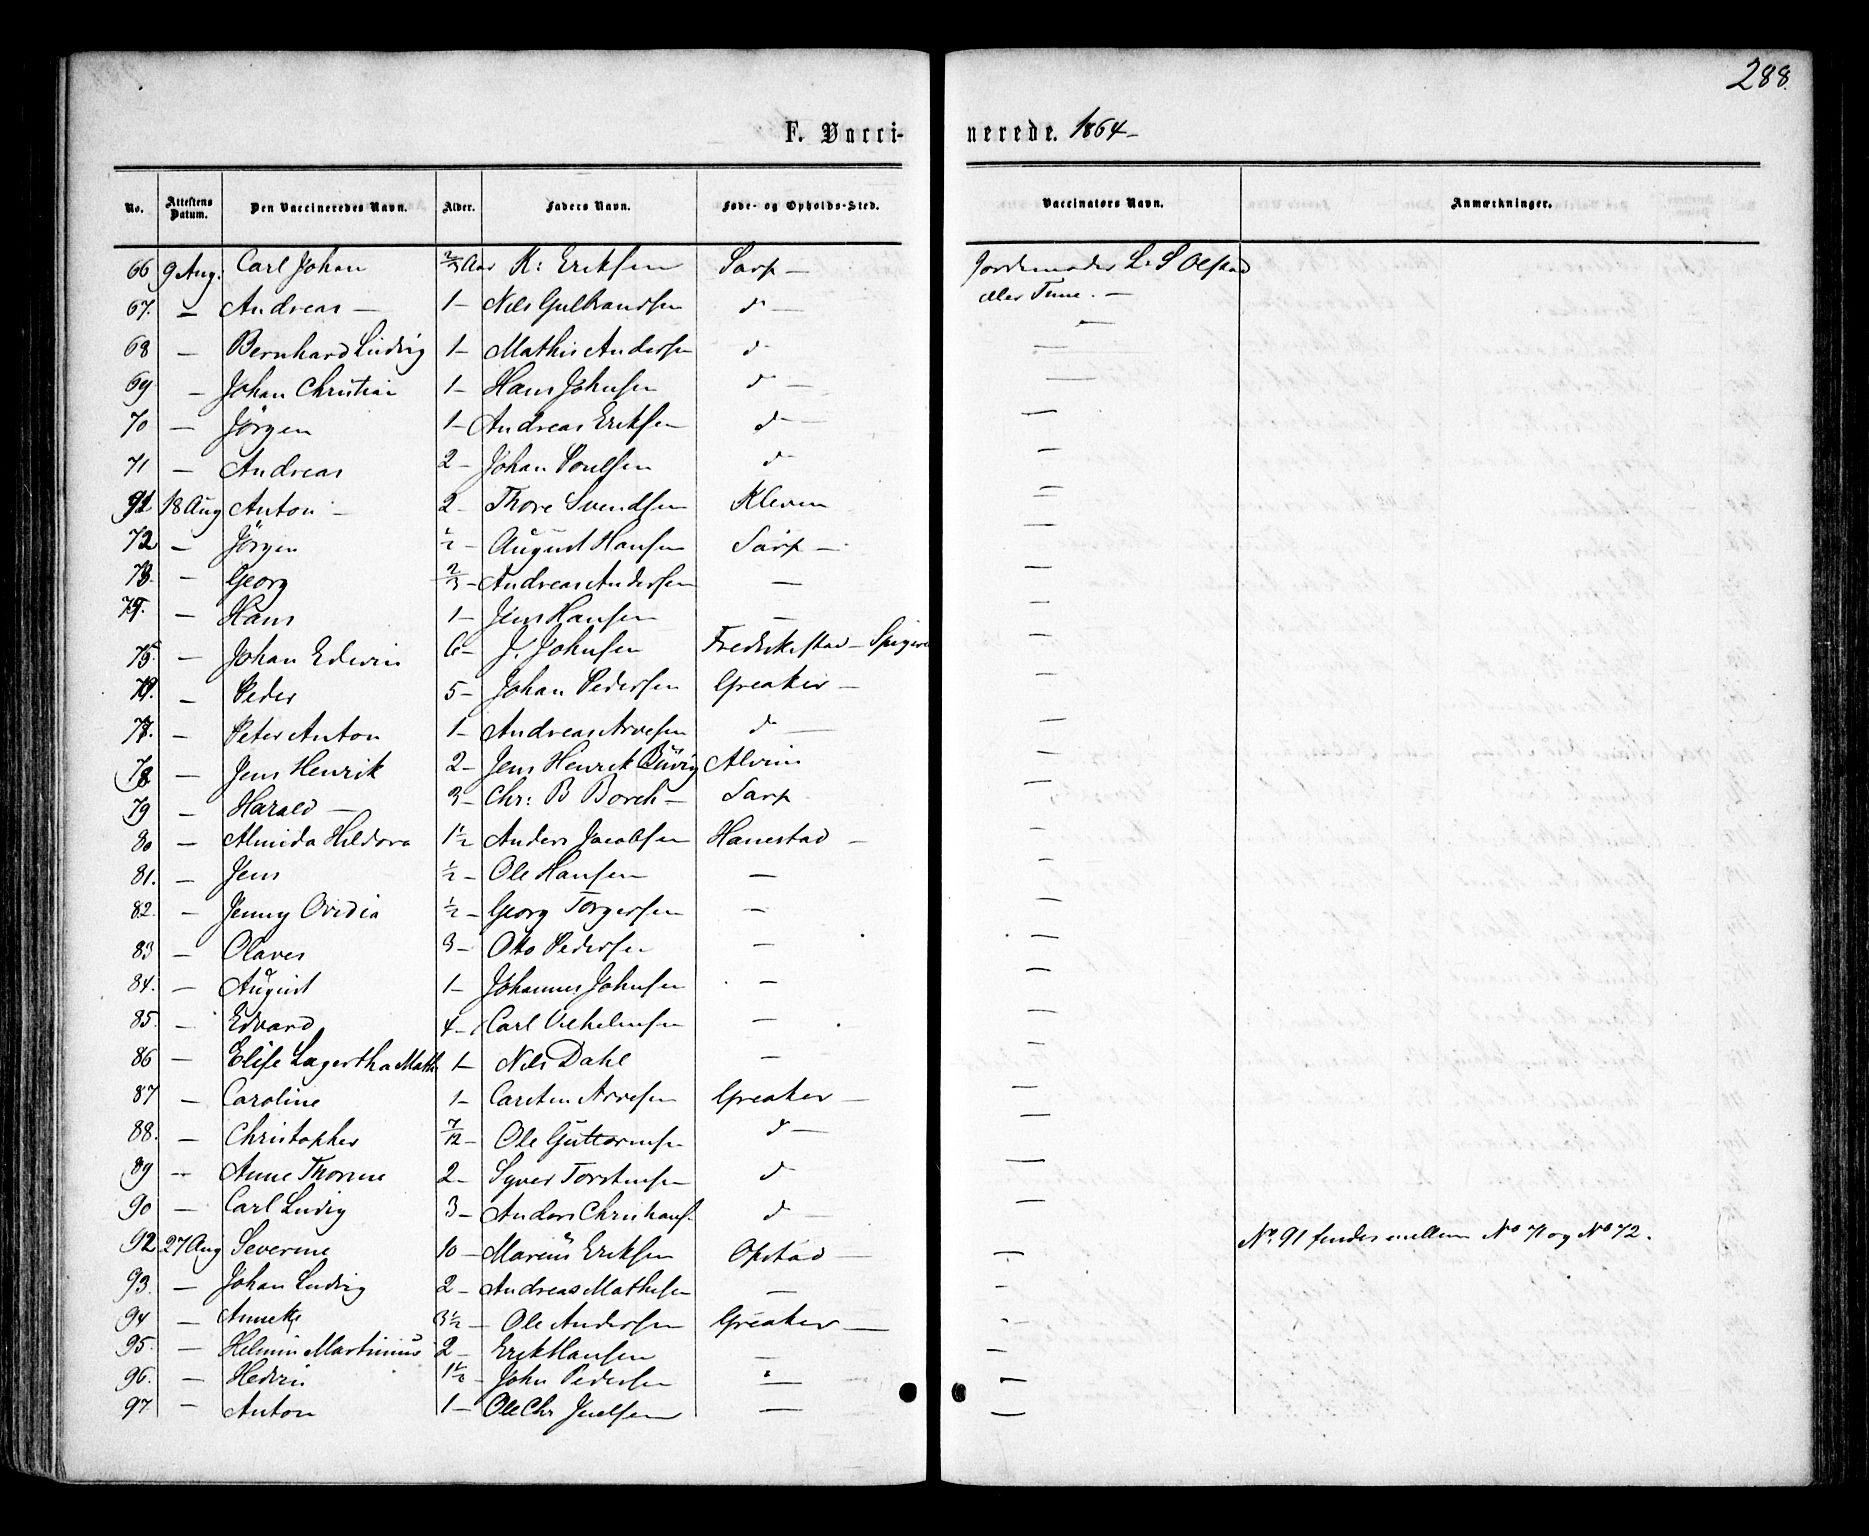 288.
F. Vacci- nerede. 1864-
No. Attestens Datum. Den Vaccineredes Navn. Alder. Faders Navn. Føde- og Opholds-Sted. Vaccinators Navn. Anmærkninger.
66 9 Aug. Carl Johan 2/3 Aar K: Eriksen Sarp — Jordemoder L. S Olstad
67. — Andreas — 1 — Nils Gulbrandsen do — eller Tune. —
68 — Bernhard Ludvig 1 — Mathis Andersen do —
69 — Johan Christian 1 — Hans Johnsen do — —
70 — Jörgen 1 — Andreas Eriksen do — —
71 — Andreas 2 — Johan Poulsen do —
91 18 Aug Anton — 2 — Thore Svendsen Kleven —
72 — Jörgen 1/2 — August Hansen Sarp — —
73. — Georg 2/3 — Andreas Andersen — —
74. — Hans 1 — Jens Hansen — —
75. — Johan Edwin 6 — J. Johnsen Fredrikstad — —
76. — Peder 5 — Johan Pedersen Greaker — —
77. — Peter Anton 1 — Andreas Arvesen do — —
78 — Jens Henrik 2 — Jens Henrik Alvim —
79 — Harald — 3 — Chr: B Borch — Sarp —
80 — Almida Hildora 1 1/2 Anders Jacobsen Hanestad — —
81. — Jens 1/2 — Ole Hansen — —
82. — Jenny Ovidia 1/2 — Georg Torgersen — —
83 — Olaves 3 — Otto Pedersen — —
84. — August 1 — Johannes Johnsen — —
85. — Edvard 4 — Carl Vilhelmsen — —
86 — Elise Lagertha Math 1 — Nils Dahl — —
87 — Caroline 1 — Carsten Arvesen Greaker — —
88. — Christopher 7/12 — Ole Guttormsen do — —
89 — Anne Thorine 2 — Syver Torstensen do —
90 — Carl Ludvig 3 — Anders Christians. do — —
92 27 Aug Severine 10 — Marius Eriksen Opstad — — No. 91 findes mellem No 71 og No 72.
93. — Johan Ludvig 2 — Andreas Mathisen — —
94 — Annette 3 1/2 — Ole Andersen Greaker — —
95. — Helmin Martinius 2 — Erik Hansen — —
96. — Hedvin 1 1/2 — John Pedersen — —
97 — Anton 1 — Ole Chr Juelsen — —